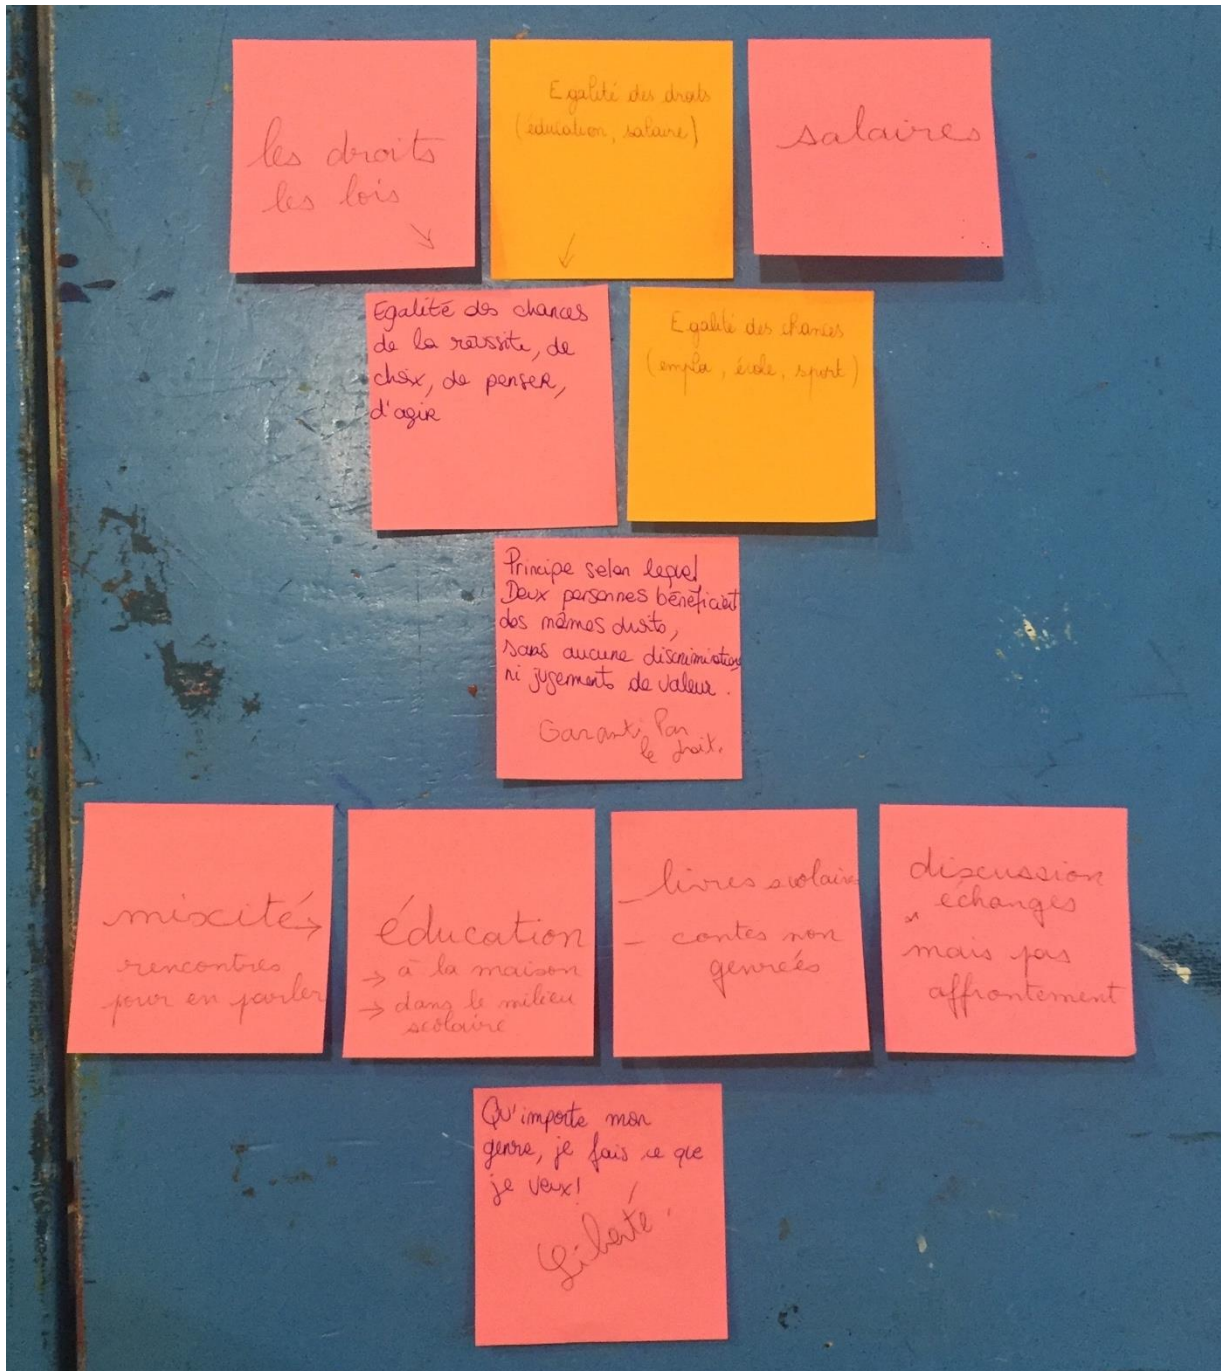 les droits
les lois
↘
Egalité des droits
(éducation, salaire)
↓
salaires
Egalité des chances
de la réussite, de
choix, de penser,
d'agir
Egalité des chances
(emploi, école, sport)
Principe selon lequel
Deux personnes bénéficient
des mêmes droits,
sans aucune discrimination
ni jugements de valeur.
Garanti Par
le droit.
mixité →
rencontres
pour en parler
éducation
→ à la maison
→ dans le milieu
scolaire
- livres scolaires
- contes non
genrées
discussion
échanges
mais pas
affrontement
Qu'importe mon
genre, je fais ce que
je veux!
Liberté